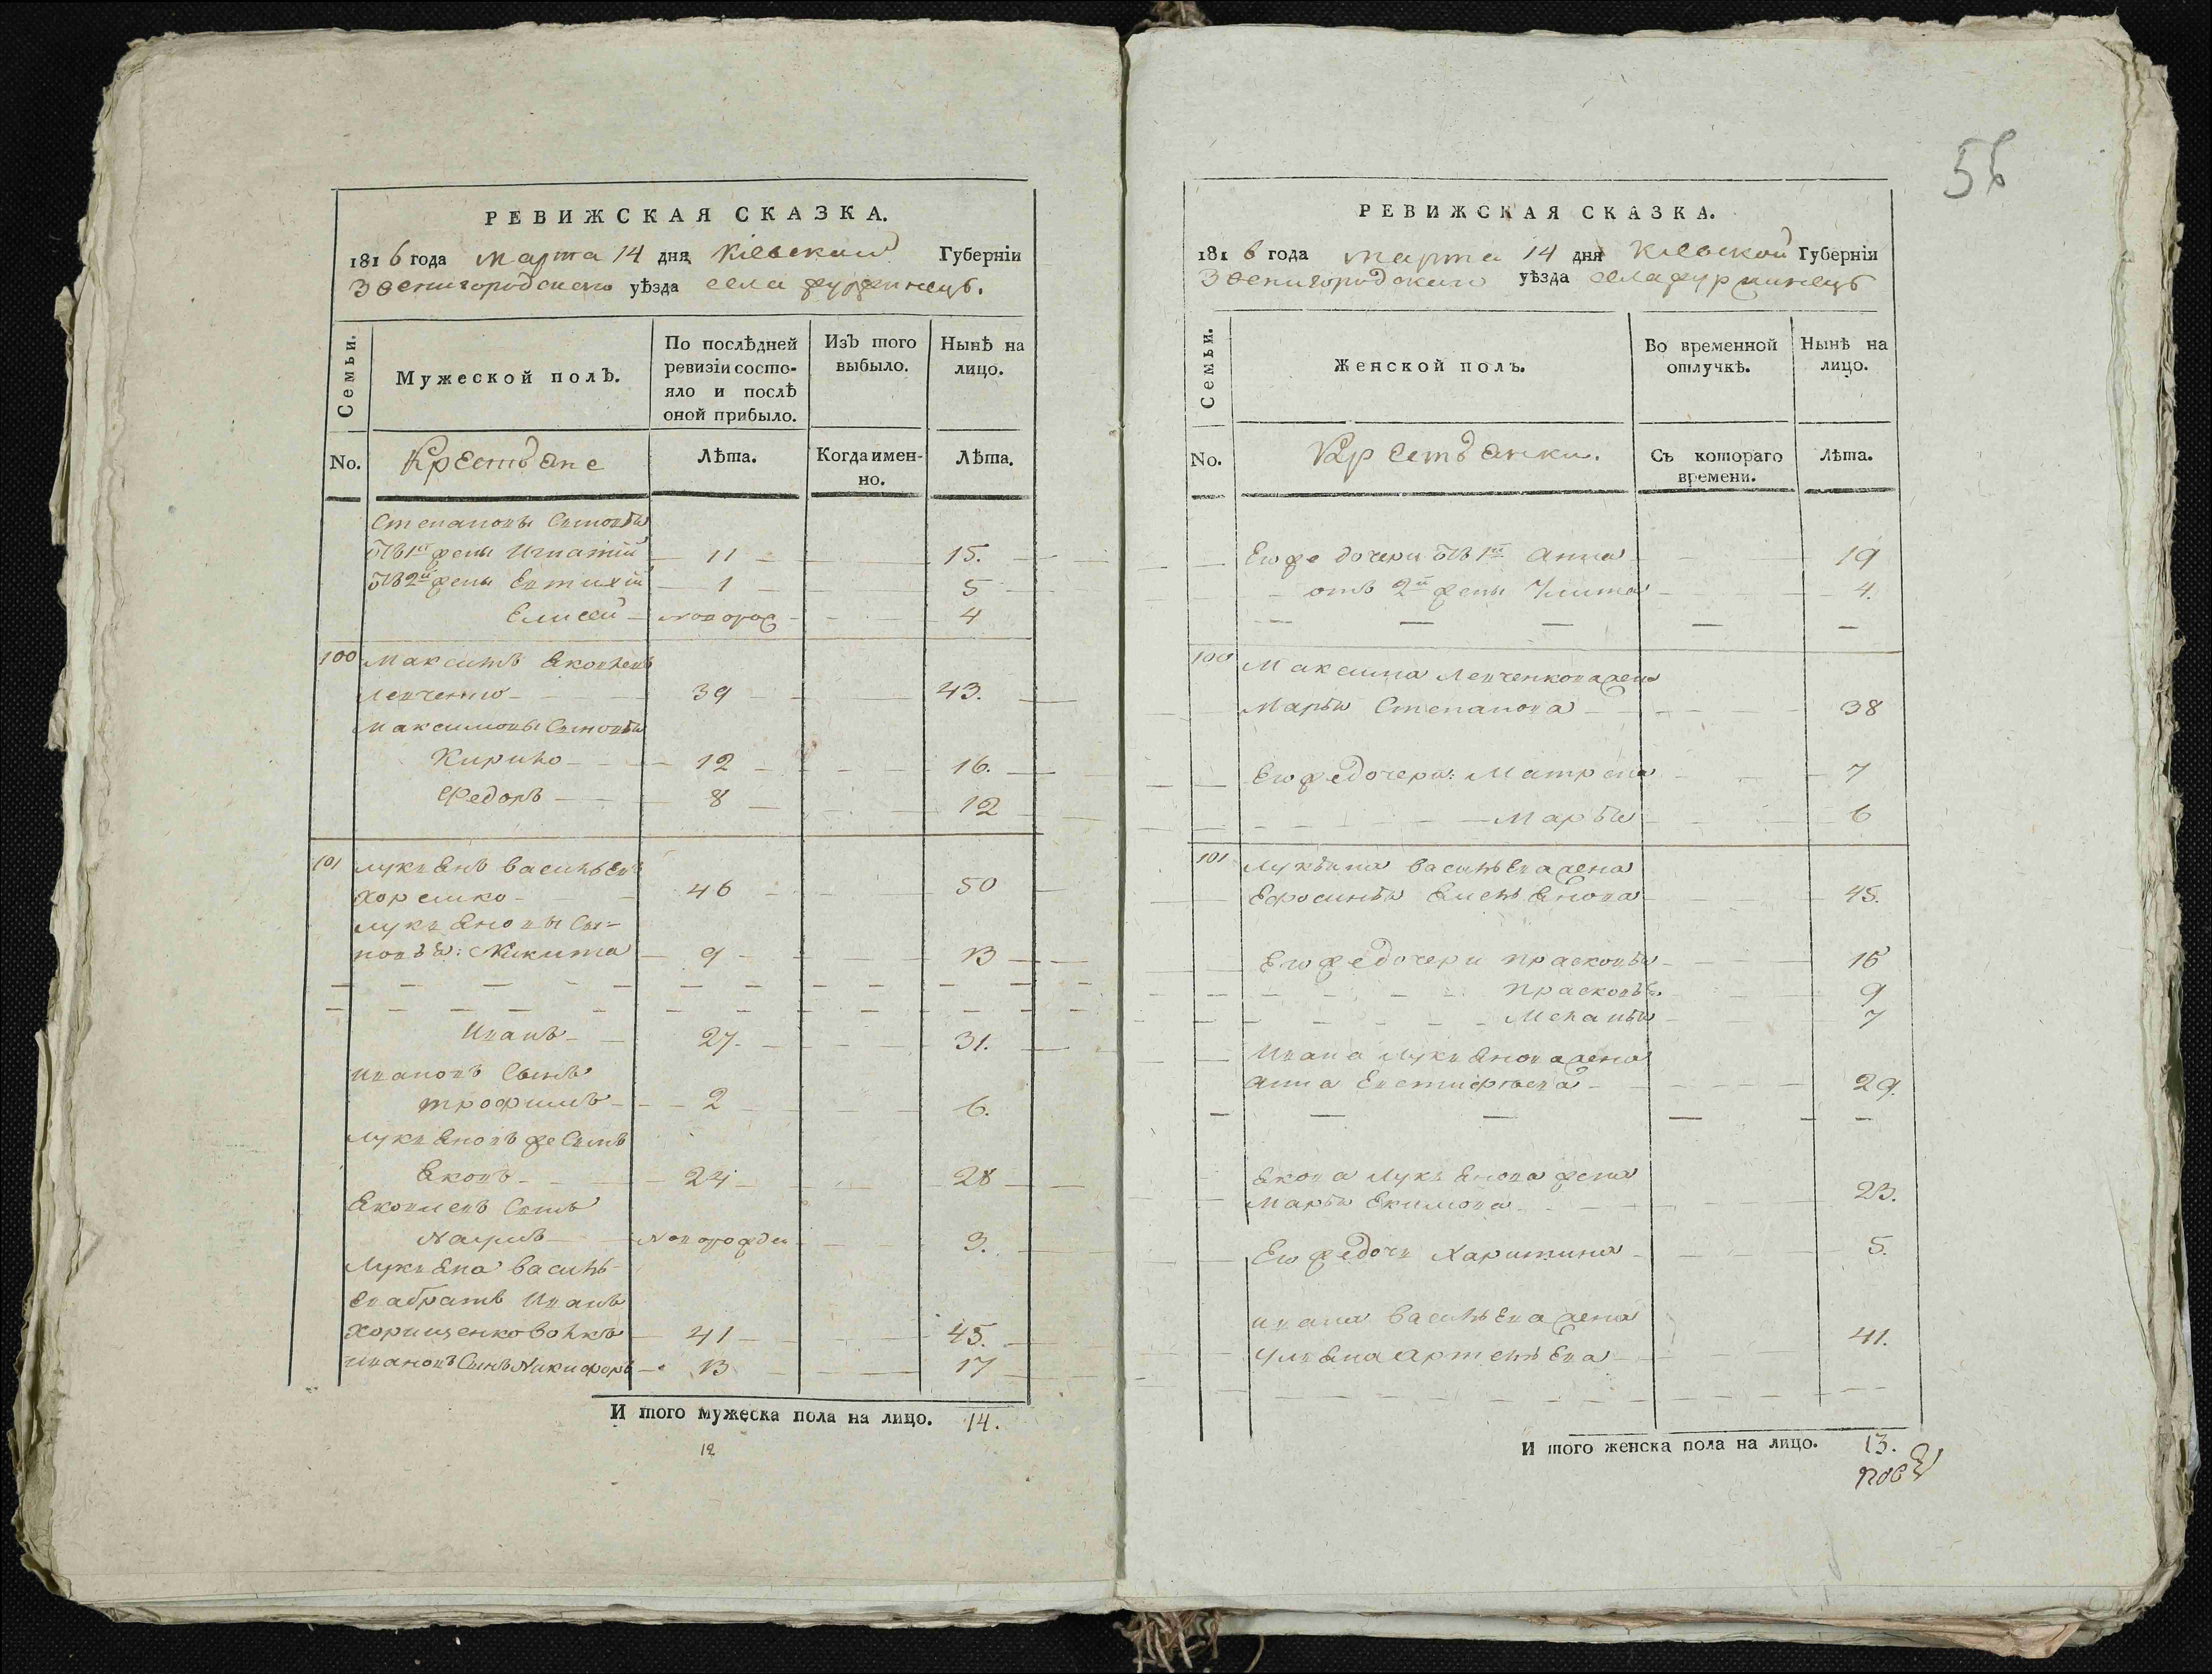 РЕВИЖСКАЯ СКАЗКА.
1816 года марта 14 дня Кіевской Губерніи
Звенигородскаго уѣзда села
Семьи. Мужеской полЪ. По послѣдней ревизіи состояло и послѣ оной прибыло. ИзЪ того выбыло. НынѢ на лицо.
No. Крестьяне Лѣта. Когда именно. Лѣта.
Степановы Сыновья
отъ 1й жены Игнатій 11 15.
отъ 2й жены Евтихій 1 5
Елисей новорож 4
100 Максимъ Яковлевъ
Левченко 39 43.
Максимовы Сыновья
Кирило 12 16.
Федоръ 8 12
101 Лукьянъ Васильевъ
46 50
Лукьяновы Сы=
новья: Никита 9 13
Иванъ 27. 31.
Ивановъ Сынъ
трофимъ 2 6.
Лукьяновъ же Сынъ
Яковъ 24 28
Яковлевъ Сынъ
Наумъ Новорожден 3.
Лукьяна Василь-
ева братъ Иванъ
41 45.
Ивановъ Сынъ Никифоръ 13 17
И того мужеска пола на лицо. 14.
12
56
РЕВИЖСКАЯ СКАЗКА.
1816 года марта 14 дня Кіевской Губернія
Звенигородскаго уѣзда села
Семьи. Женской полъ. Во временной отлучкѣ. Нынѣ на лицо.
No. Крестьянки. Съ котораго времени. Лѣта.
Его же дочери отъ 1й Анна 19
отъ 2й жены Улита 4.
100 Максима Левченкова жена
Марья Степанова 38
Его же дочери: Матрена 7
Марья 6
101 Лукьяна Васильева жена
Ефросинья Емельянова 45.
Его же дочери прасковья 16
прасковья 9
Меланья 7
Ивана Лукьянова жена
Анна Евстифьева 29.
Якова Лукьянова жена
Марья Екимова 23.
Его же дочь Харитина 5.
Ивана Васильева жена
Ульяна Артемьева 41.
И того женска пола на лицо. 13.